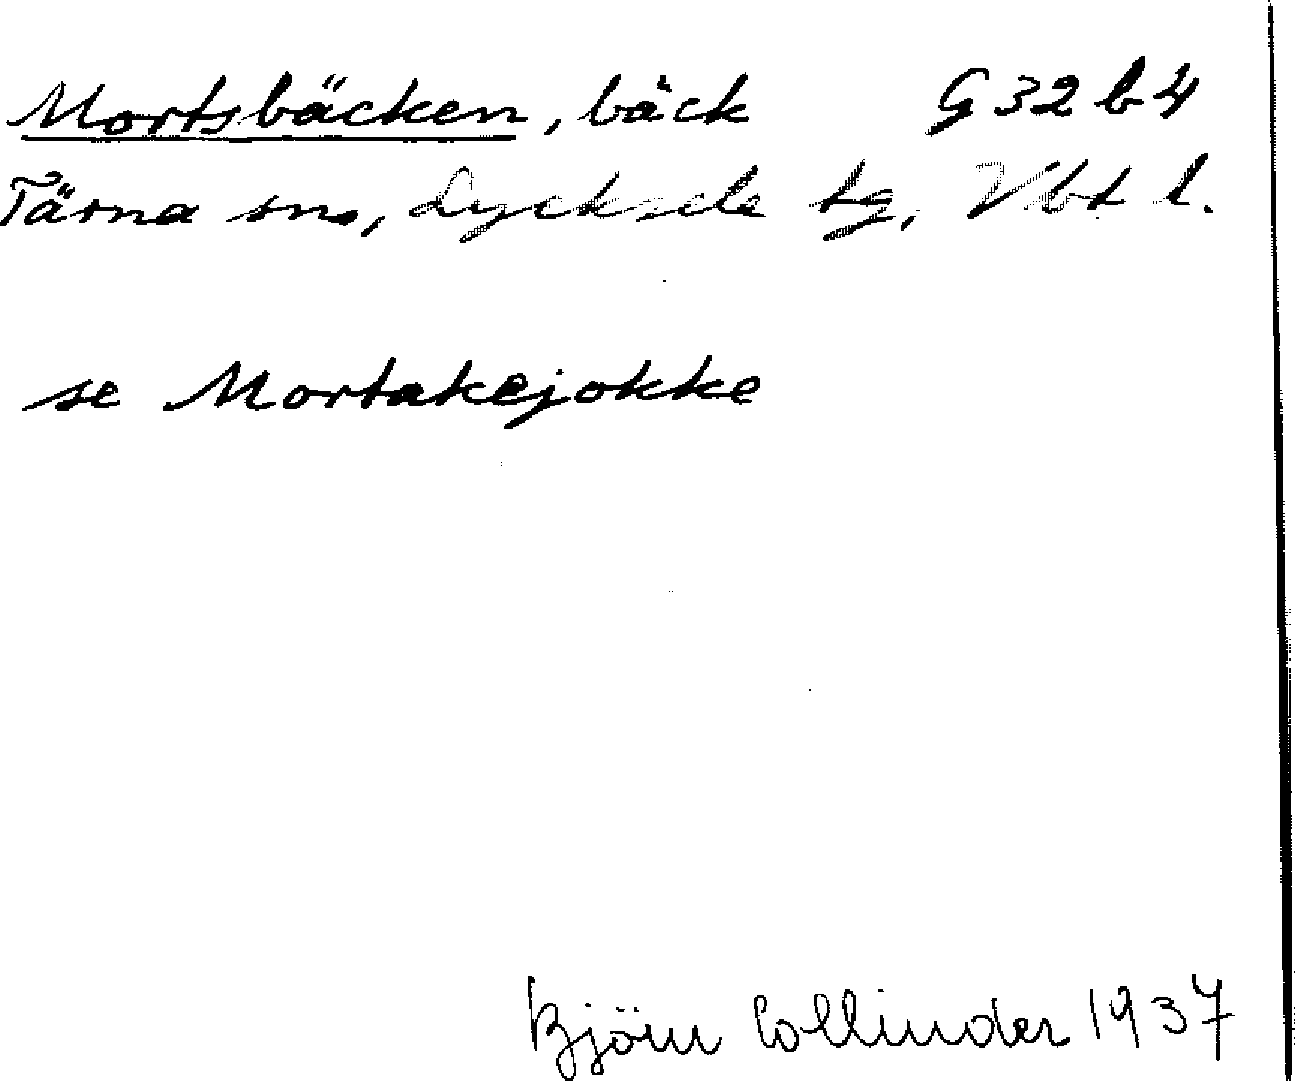 Mortsbäcken, bäck G 32 b 4
Tärna sn, Lycksele lg, Vbt l.
se Mortakejokke
Björn Collinder 1937